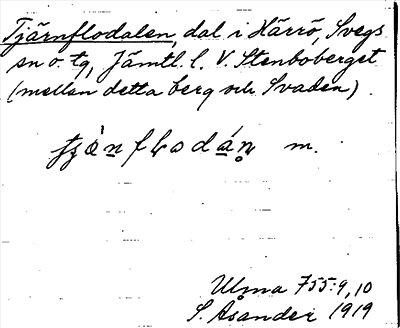 Tjärnflodalen, dal i Härrö, Svegs
sn o. tg, Jämtl. l. V. Stenboberget
(mellan detta berg och Svaden).
m.
Ulma 755:9,10
S. Åsander 1919